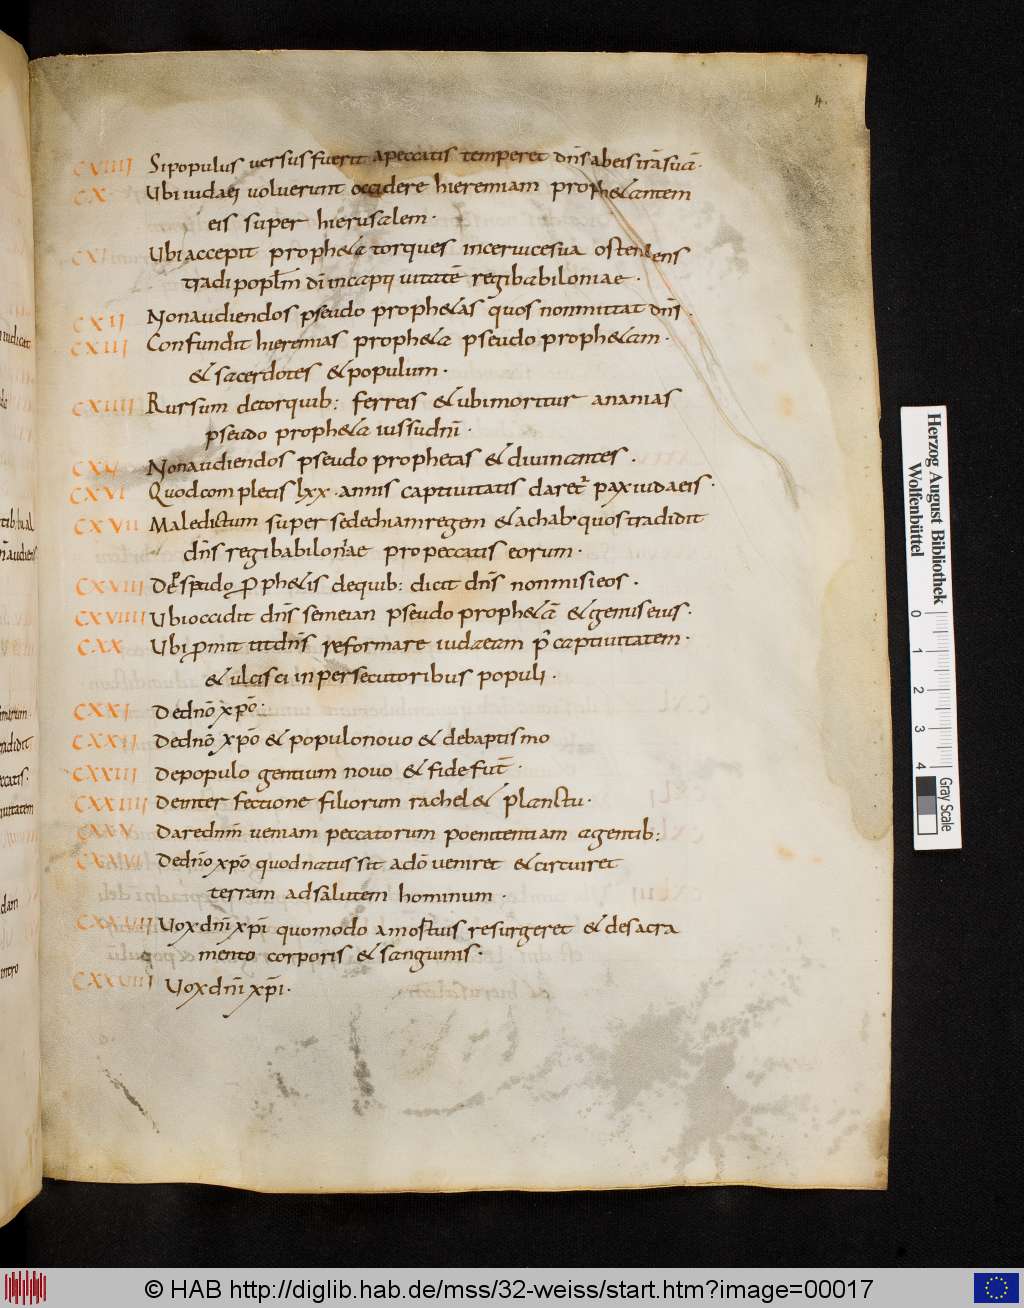 4.
CXIIII Si populus uersus fuerit a peccatis temperet dn̄s ab eis irā suā.
CX Ubi iudaei uoluerunt occidere hieremiam prophetantem
eis super hierusalem.
CXI Ubi accepit propheta torques in ceruice sua ostendens
tradi popl̄m dī in captiuitatē regi babiloniae.
CXII Non audiendos pseudo prophetas quos non mittat dn̄s.
CXIII Confundit hieremias propheta pseudo prophetam.
et sacerdotes et populum.
CXIIII Rursum de torquib: ferreis et ubi moritur ananias
pseudo propheta iussu dn̄i.
CXV Non audiendos pseudo prophetas et diuinantes.
CXVI Quod completis lxx. annis captiuitatis daret͛ pax iudaeis.
CXVII Maledictum super sedechiam regem et achab quos tradidit
dn̄s regi babiloniae pro peccatis eorum.
CXVIII De pseudo ꝓphetis de quib: dicit dn̄s non misi eos.
CXVIIII Ubi occidit dn̄s semeian pseudo prophetā et genus eius.
CXX Ubi ꝓmittit dn̄s reformare iudaeam p̄ captiuitatem.
et ulcisci in persecutoribus populi.
CXXI De dn̄o xp̄o.
CXXII De dn̄o xp̄o et populo nouo et de baptismo
CXXIII De populo gentium nouo et fide fut̄.
CXXIIII De interfectione filiorum rachel et planctu.
CXXV Dare dn̄m ueniam peccatorum poenitentiam agentib:
CXXVI De dn̄o xp̄o quod natus sit adō ueniret et circuiret
terram ad salutem hominum.
CXXVII Uox dn̄i xp̄i quomodo a mortuis resurgeret et de sacra
mento corporis et sanguinis.
CXXVIII Uox dn̄i xp̄i.
Herzog August Bibliothek
Wolfenbüttel
0 1 2 3 4
Gray Scale
© HAB http://diglib.hab.de/mss/32-weiss/start.htm?image=00017